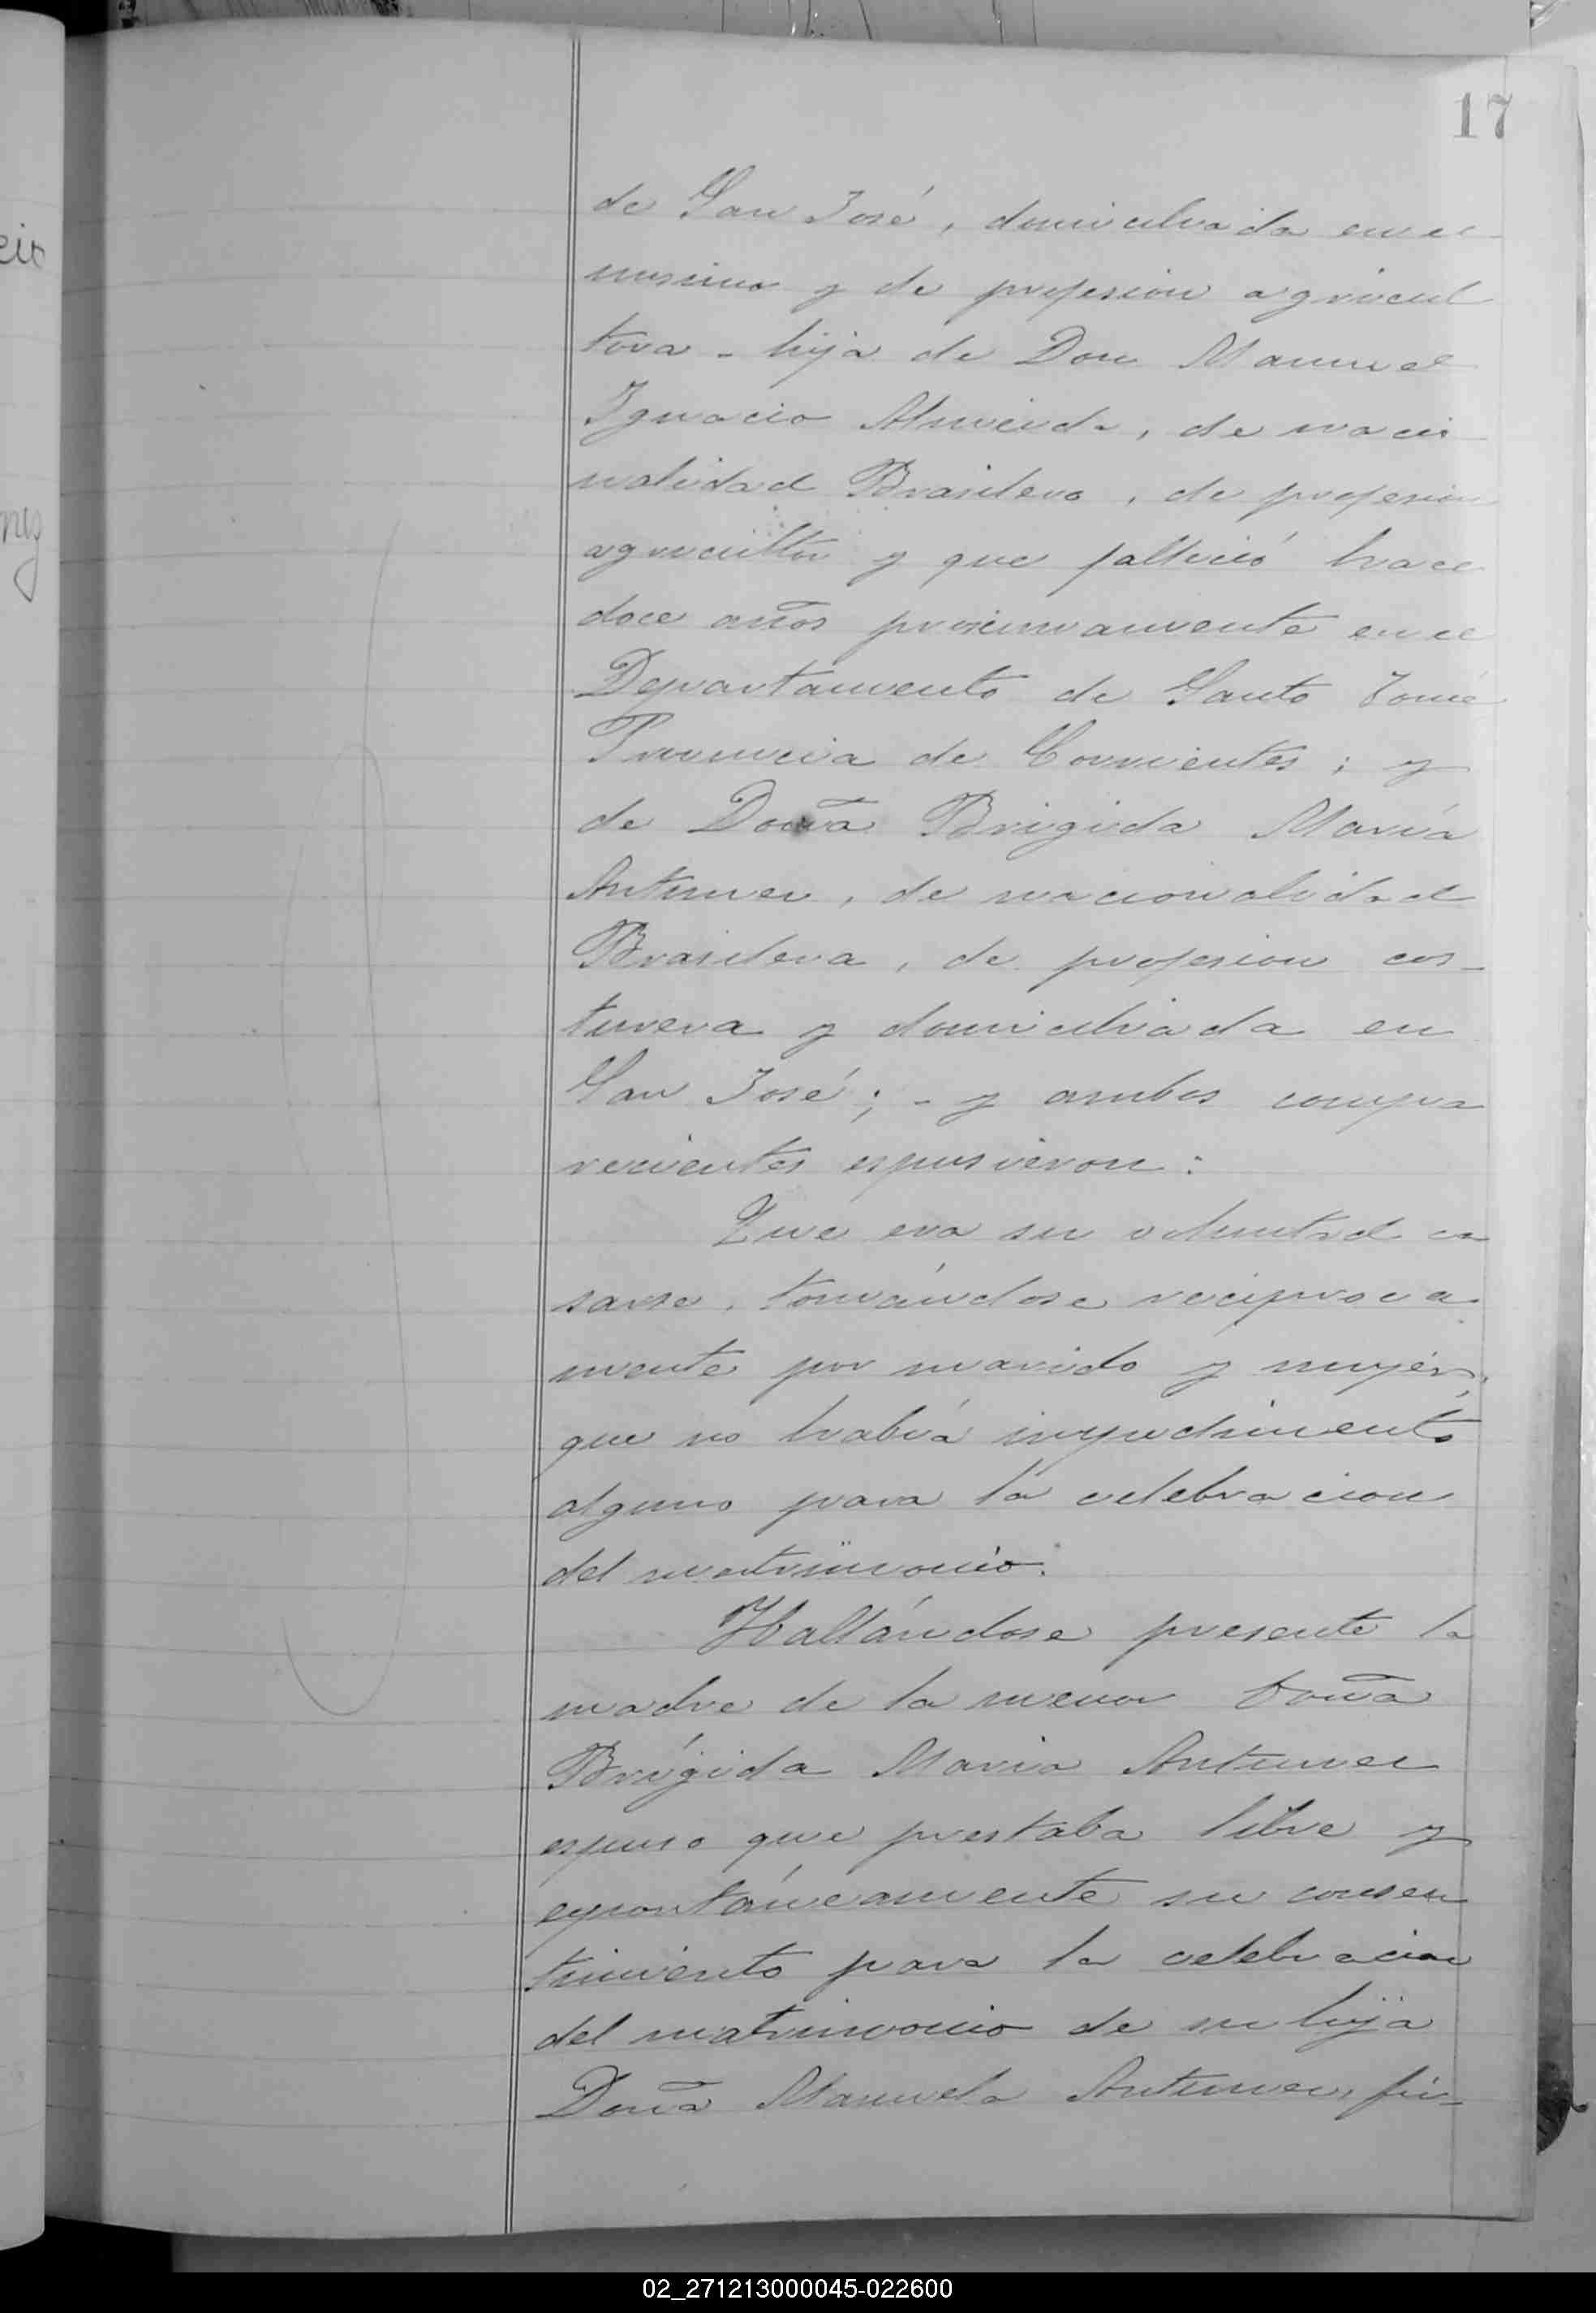 17
de San José, domiciliada en el
mismo y de profesion agricul
tora - hija de Don Manuel
Ignacio Almeida, de nacio
nalidad Brasilera, de profesion
agricultor y que falleció hace
doce años proximamente en el
Departamento de Santo Tomé
Provincia de Corrientes; y
de Doña Brigida María
Antunes, de nacionalidad
Brasilera, de profesion cos-
turera y domiciliada en
San José; - y ambos compa
recientes espusieron:
Que era su voluntad ca
sarse, tomándose reciproca
mente por marido y mujer,
que no había impedimento
alguno para la celebracion
del matrimonio.
Hallándose presente la
madre de la menor Doña
Brígida Maria Antunes
espuso que prestaba libre y
espontáneamente su consen
timiento para la celebracion
del matrimonio de su hija
Doña Manuela Antunes, fir-
02_271213000045-022600